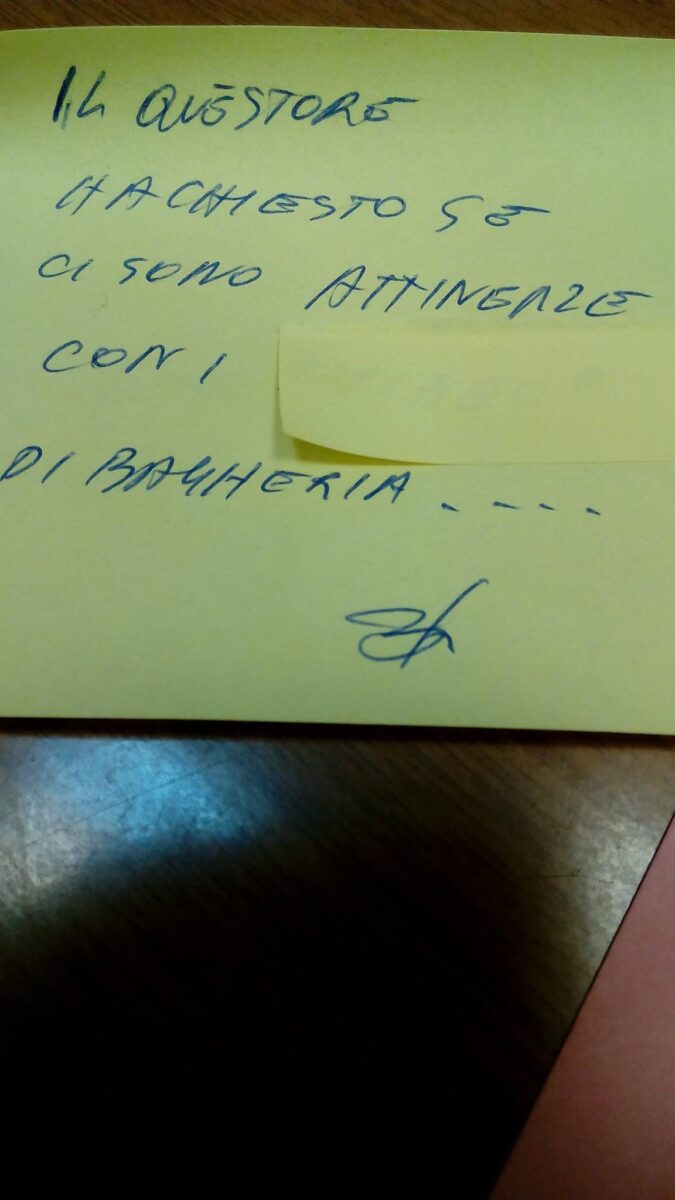 IL QUESTORE
HA CHIESTO SE
CI SONO ATTINENZE
CON I
DI BAGHERIA . - - - .